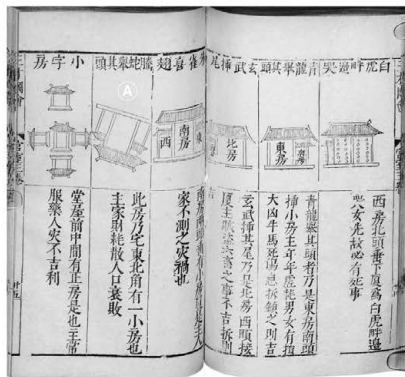 白虎畔邉哭
西房北頭垂下厦為白虎畔邉
哭女先故必有死事
青龍舉其頭
東房
青龍舉其頭者乃是東房南頭
挿小房主年年虚耗男女有損
大凶牛馬死傷急拆鎮之則吉
玄武挿尾
北房
玄武挿其尾乃是北房西頭接
之事不吉拆則
吉
雀喜翅
東
南房
西
家不測之災禍也
騰蛇舉其頭
A
此房乃宅東北角有一小房也
主家財耗散人口衰敗
小字房
堂屋前中間有正房是也主常
服藥人災不吉利